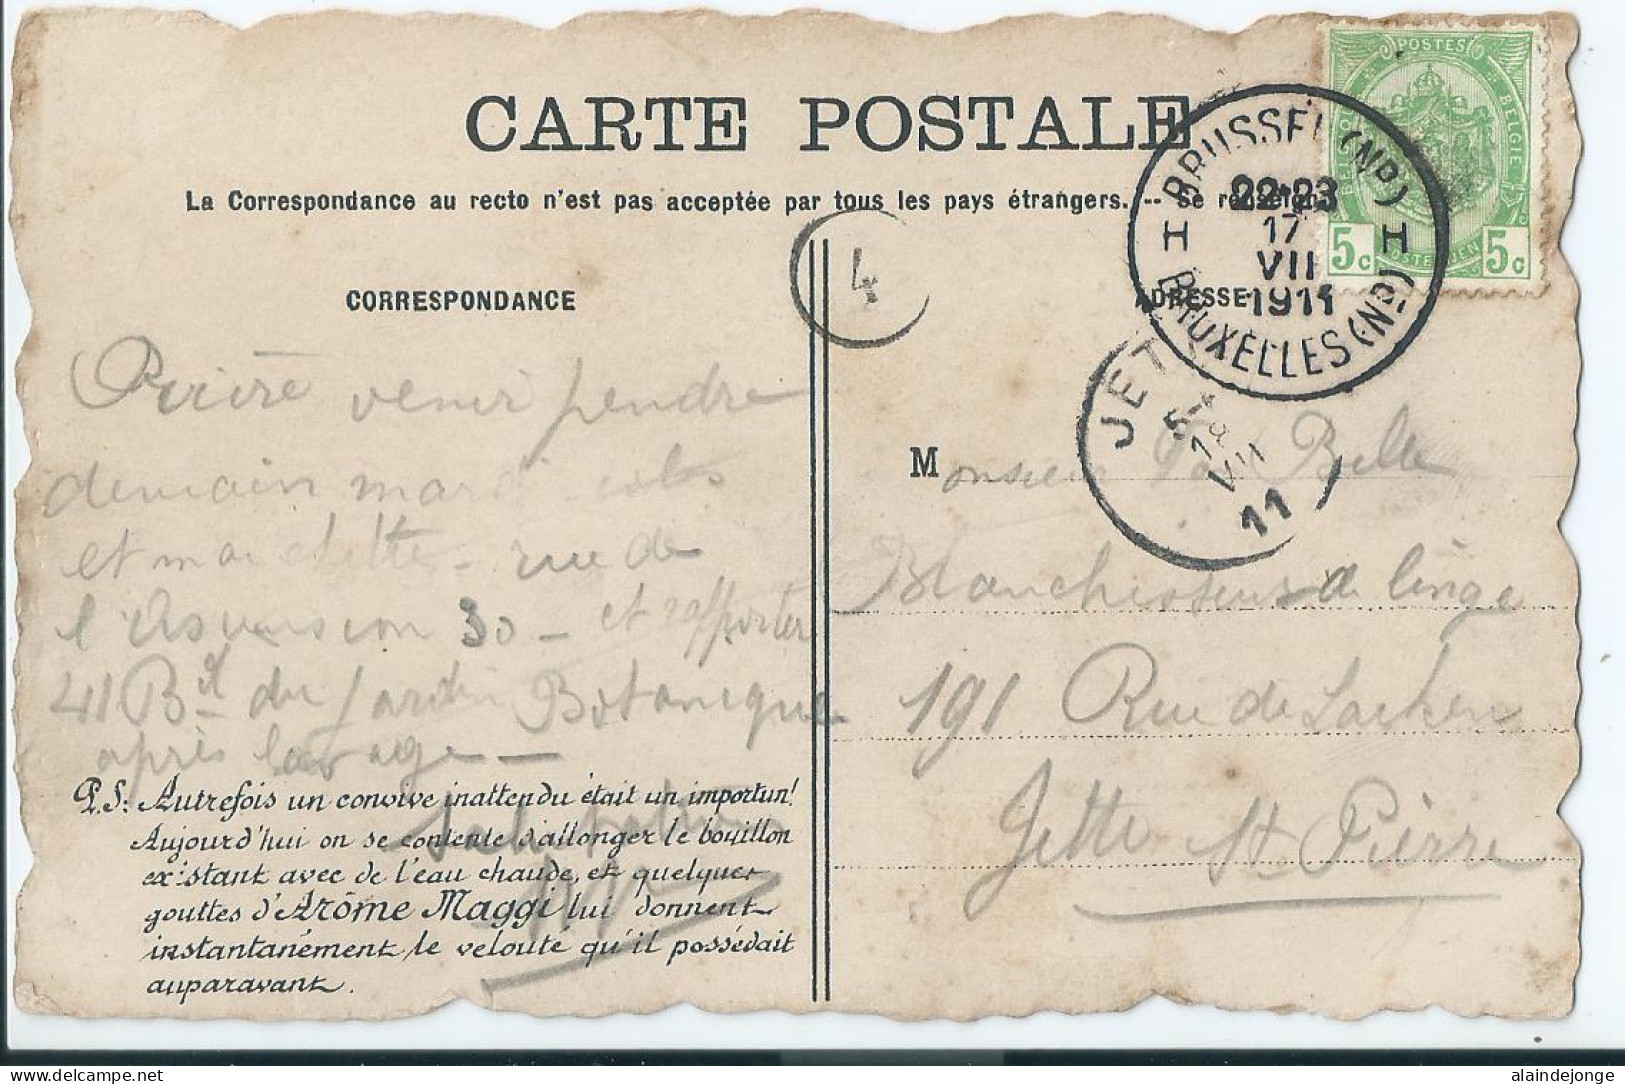 CARTE POSTALE
La Correspondance au recto n'est pas acceptée par tous les pays étrangers. -- Se renseigner
CORRESPONDANCE
4
ADRESSE
POSTES
BELGIQUE
BELGIE
POSTERIJEN
5c 5c
BRUSSEL (ND)
22-23
17
VII
1911
BRUXELLES (ND)
JETTE
18
VII
11
Prière venir prendre
demain mardi cols
et manchettes - rue de
l'Ascension 30 - et rapporter
41 Bd du Jardin Botanique
après lavage -
Salutations
Monsieur Belle
Blanchisseur de linge
191 Rue de Laeken
Jette St Pierre
P.S: Autrefois un convive inattendu était un importun!
Aujourd'hui on se contente d'allonger le bouillon
existant avec de l'eau chaude, et quelques
gouttes d'Arôme Maggi lui donnent
instantanément le velouté qu'il possédait
auparavant.
alaindejonge